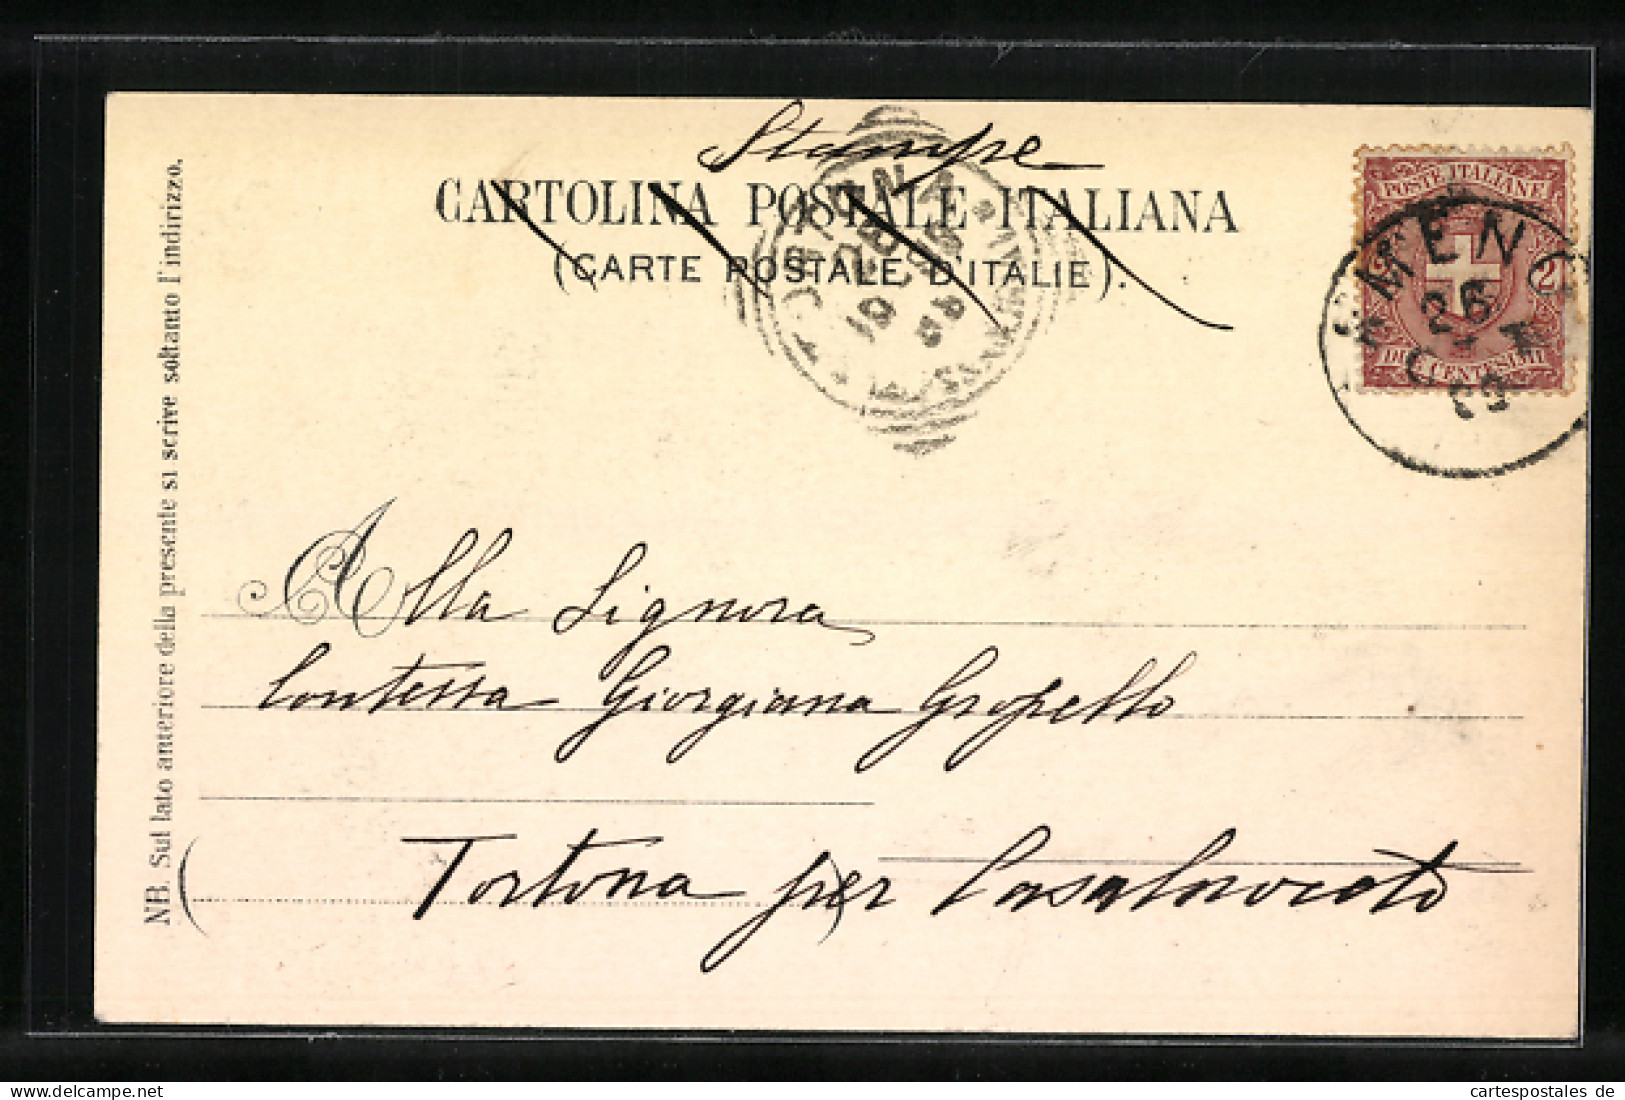 Stampe
CARTOLINA POSTALE ITALIANA
(CARTE POSTALE D'ITALIE).
POSTE ITALIANE
2 2
DUE CENTESIMI
26
99
NB. Sul lato anteriore della presente si scrive soltanto l'indirizzo.
Alla Signora
Contessa Giorgiana Gropello
(Tortona per) Casalnoceto
cartespostales de